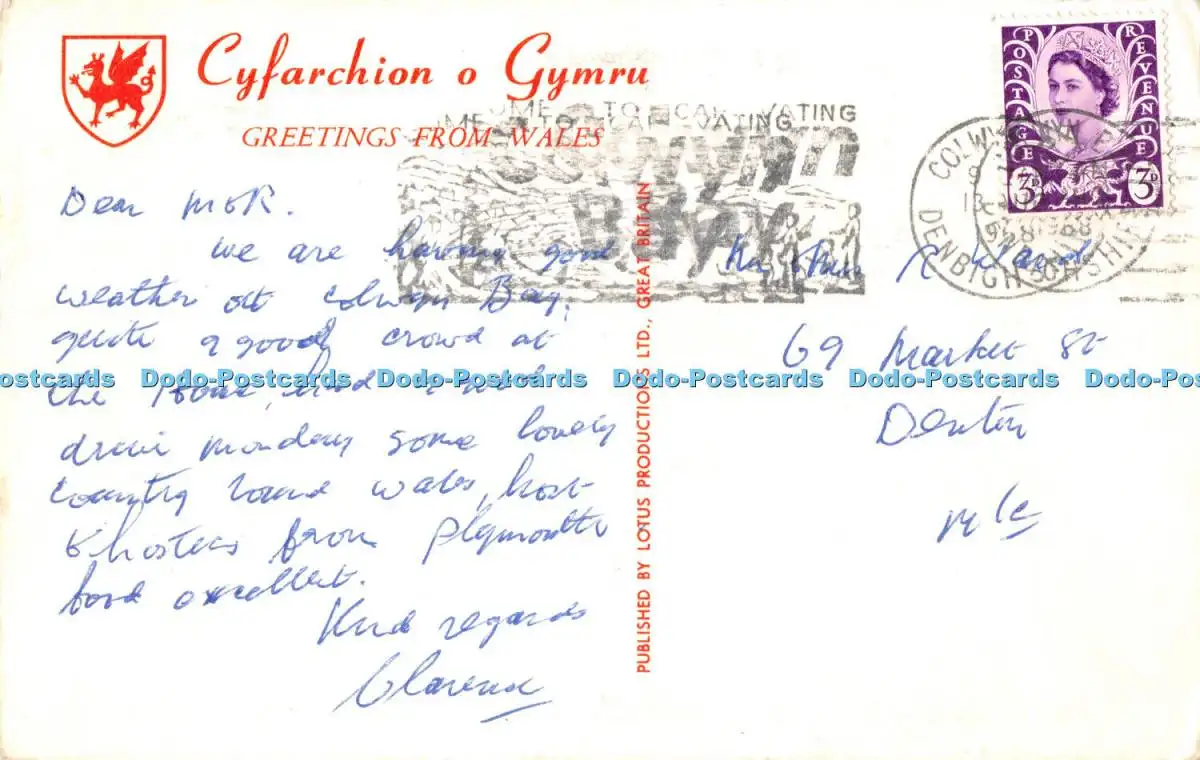 Cyfarchion o Gymru
GREETINGS FROM WALES
COME TO CAPTIVATING
Colwyn
Bay
POSTAGE REVENUE
3D 3D
COLWYN BAY
1968
DENBIGHSHIRE
Dear M & R.
we are having good
weather at Colwyn Bay,
quite a good crowd at
the
drive monday some lovely
country round wales, host
& hostess from Plymouth
food excellent.
Kind regards
Clarence
PUBLISHED BY LOTUS PRODUCTIONS LTD., GREAT BRITAIN
Mr & Mrs R Ward
69 Market St
Denton
M/c
Dodo-Postcards Dodo-Postcards Dodo-Postcards Dodo-Postcards Dodo-Postcards Dodo-Postcards